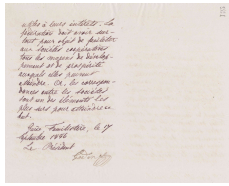 utiles à leurs intérêts. La
fédération doit avoir sur-
tout pour objet de faciliter
aux sociétés coopératives
tous les moyens de dévelop-
pement et de prospérité
auxquels elles peuvent
atteindre. Or, les correspon-
dances entre les sociétés
sont un des éléments les
plus sûrs pour atteindre ce
but.
Guise Familistère, le 17
1886
Le Président